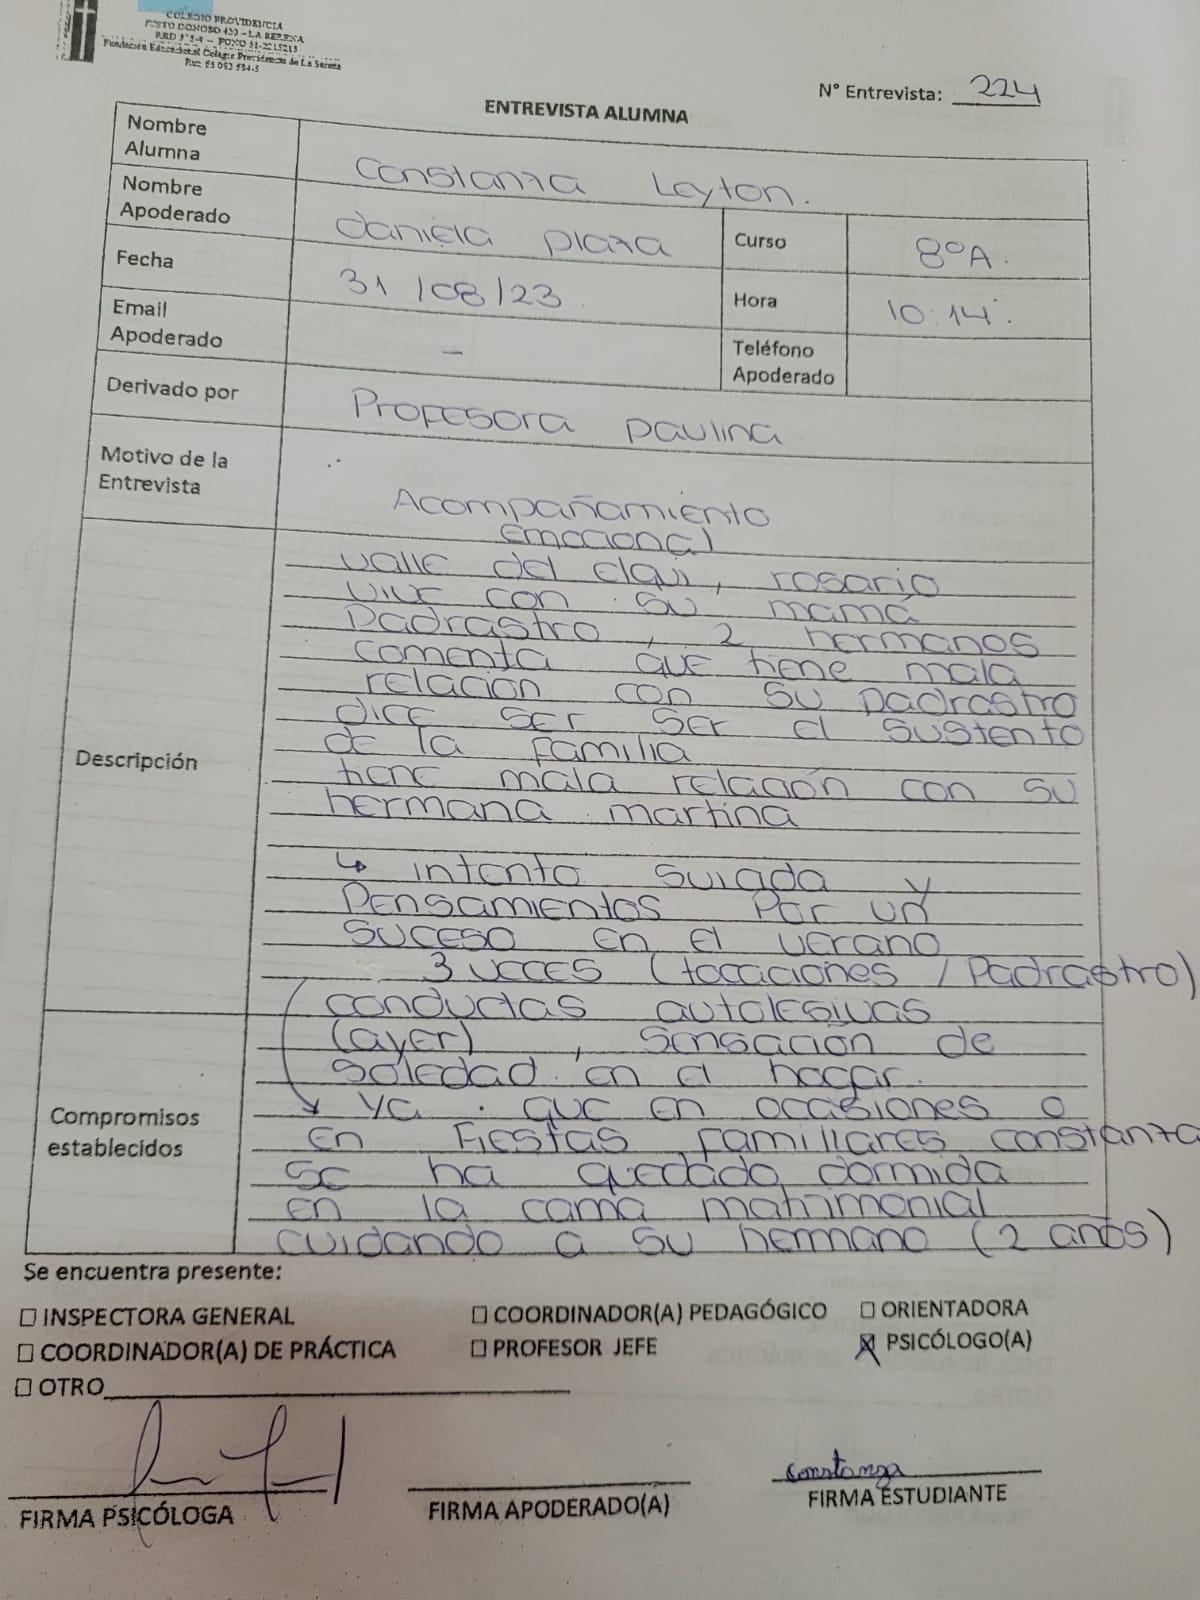 COLEGIO PROVIDENCIA
JUSTO DONOSO 420 - LA SERENA
Fundación Educacional Colegio Providencia de La Serena
N° Entrevista: 224
ENTREVISTA ALUMNA
Nombre Alumna Constanza Leyton.
Nombre Apoderado daniela plaza Curso 8°A.
Fecha 31/08/23. Hora 10:14.
Email Apoderado - Teléfono Apoderado
Derivado por Profesora paulina.
Motivo de la Entrevista Acompañamiento
emocional
Descripción
valle del elqui, rosario
vive con su mamá
Padrastro, 2 hermanos
comenta que tiene mala
relacion con su padrastro
dice ser ser el sustento
de la familia
tiene mala relación con su
hermana martina
↳ intento suiada y
Pensamientos Por un
suceso en el verano
3 veces (tocaciones / Padrastro)
conductas autolesivas
(ayer), sensación de
soledad en el hogar.
Compromisos establecidos
ya que en ocasiones o
en fiestas familiares constanza
se ha quedado dormida
en la cama matrimonial
cuidando a su hermano (2 años)
Se encuentra presente:
☐ INSPECTORA GENERAL ☐ COORDINADOR(A) PEDAGÓGICO ☐ ORIENTADORA
☐ COORDINADOR(A) DE PRÁCTICA ☐ PROFESOR JEFE ☒ PSICÓLOGO(A)
☐ OTRO
constanza
FIRMA PSICÓLOGA FIRMA APODERADO(A) FIRMA ESTUDIANTE